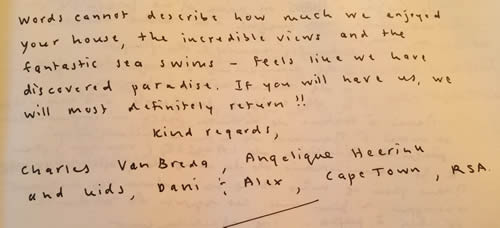 Words cannot describe how much we enjoyed
your house, the incredible views and the
fantastic sea swims - feels like we have
discovered paradise. If you will have us, we
will most definitely return!!
Kind regards,
Charles Van Breda, Angelique
and kids, Dani & Alex, Cape Town, RSA.